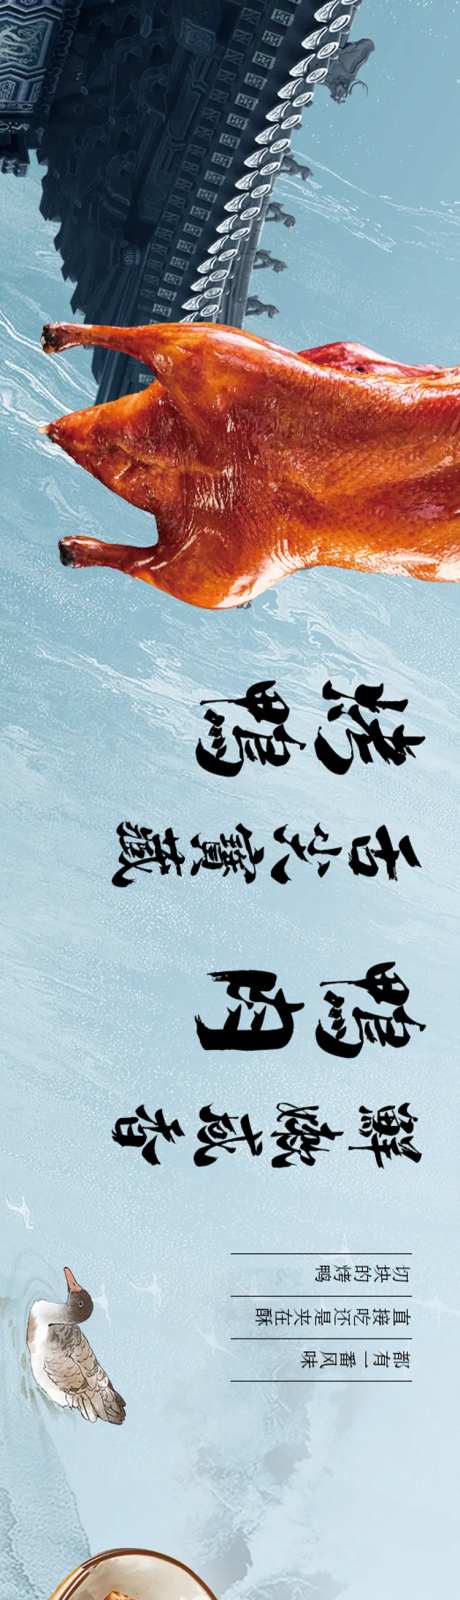 烤鴨
舌尖寶藏
鴨肉
鮮嫩咸香
切块的烤鸭
直接吃还是夹在酥
都有一番风味